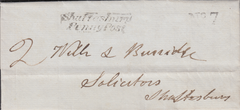 Shaftesbury
Penny Post
No 7
2 Wilts & Burridge
Solicitors
Shaftesbury